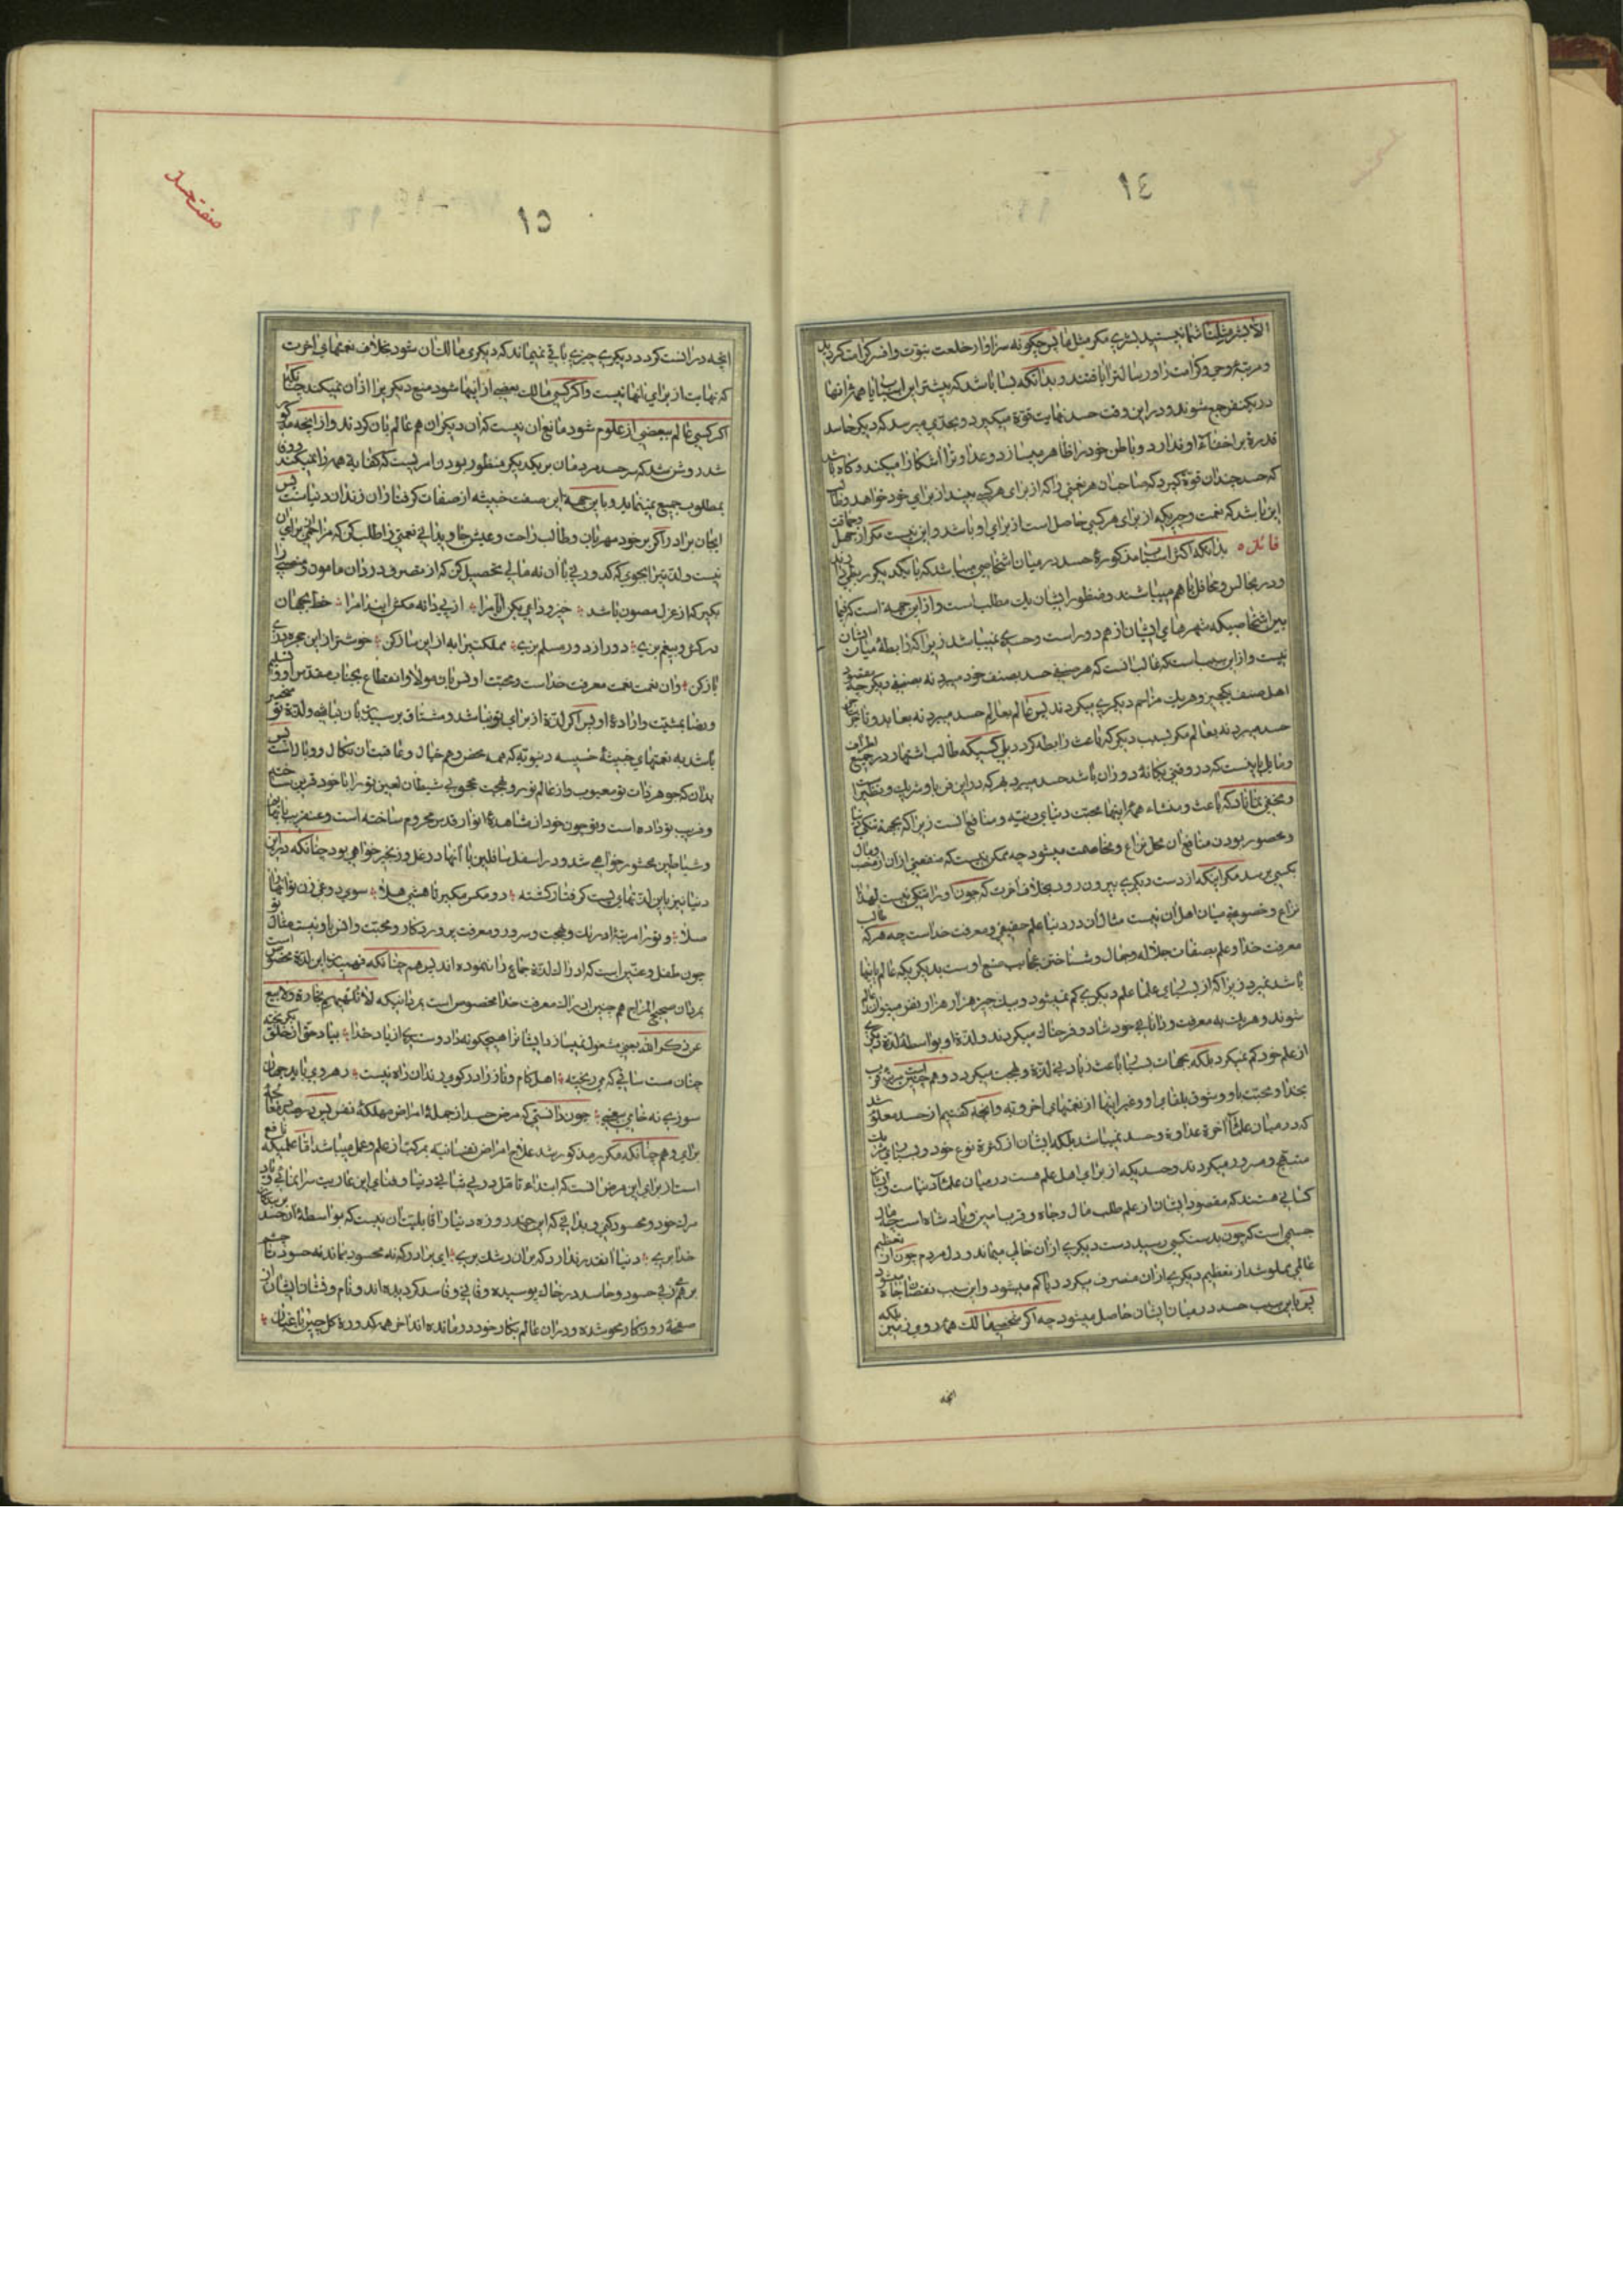 ١٤
الا بشر مثلنا شما نیستید بشری مکر مثل ما پس چکونه سزاوار خلعت نبوت و افسر کرامت کردید
و مرتبهٔ وحی و کرامت را و رسالترا یافتند و بدانکه بسا باشد که بیشتر این اسباب یا همهٔ انها
در یکنفر جمع شوند و در این وقت حسد نهایت قوة میکیرد و بحدی میرسد که دیکر حاسد
قدرة بر اخفاء او ندارد و باطن خود را ظاهر میسازد و عداوترا آشکارا میکند و کاه باشد
که حسد چندان قوة کیرد که صاحب ان هر نعمتی را که از برای هر کسی بیند از برای خود خواهد و طالب
این باشد که نعمت و چیزیکه از برای هر کسی حاصل است از برای او باشد و این نیست مکر از جهل و حماقت
فائده بدانکه اکثر اسباب مذکورهٔ حسد در میان اشخاصی میباشد که با یکدیکر ربطی دارند
و در مجالس و محافل با هم میباشند و منظور ایشان یک مطلب است و از این جهة است که فیما
بین اشخاصیکه شهرهای ایشان از هم دور است و حسدی نمیباشد زیرا که رابطهٔ میان ایشان
نیست و از این سبب است که غالب انست که هر صنفی حسد بصنف خود میبرد نه بصنفی دیکر چه مقصود
اهل صنف یکچیز و هر یک مزاحم دیکری میکردند پس عالم بعالم حسد میبرد نه بعابد و تاجر بتاجر
حسد میبرد نه بعالم مکر بسبب دیکر که باعث رابطه کردد بلی کسیکه طالب اشتهار در جمیع اطراف
و مایل باینست که در وقتی یکانهٔ دوران باشد حسد میبرد بهر که در این فن با او شریک و نظیر است
و مخفی نماناد که باعث و منشاء همهٔ اینها محبت دنیای دنیّه و منافع انست زیرا که بجهة تنکی دنیا
و محصور بودن منافع ان محل نزاع و مخاصمت میشود چه ممکن نیست که منفعتی از ان از منصب و مال
بکسی برسد مکر اینکه از دست دیکری بیرون رود بخلاف اخرت که چون او را تنکی نیست لهذا
نزاع و خصومتی میان اهل ان نیست مثال ان در دنیا علم حقیقی و معرفت خدا است چه هر که طالب
معرفت خدا و علم بصفات جلال و جمال و شناختن عجایب صنع اوست بدیکریکه عالم باینها
باشد نمیبرد زیرا که از بسیاری علما علم دیکری کم نمیشود و بیک چیز هزار هزار نفر میتواند عالم
شوند و هر یک به معرفت و دانائی خود شاد و فرحناک میکردند و لذة او بواسطهٔ لذة دیکری
از علم خود کم نمیکردد بلکه بجهات بسیار باعث زیادتی لذة و بهجت میکردد و همچنین است مرتبهٔ قرب
بخدا و محبت باو و شوق بلقای او و غیر اینها از نعمتهای اخرویّه و انچه کفتیم از حسد معلوم شد
که در میان علماء آخرة عداوة و حسد نمیباشد بلکه ایشان از کثرة نوع خود و بسیاری شریک
مبتهج و مسرور میکردند و حسدیکه از برای اهل علم هست در میان علماء دنیا است و ایشان
کسانی هستند که مقصود ایشان از علم طلب مال و جاه و قرب امیر و پادشاه است چه مال
جسمی است که چون بدست کسی رسید دست دیکری از ان خالی میماند و دل مردم چون از تعظیم
عالمی مملو شد از تعظیم دیکری از ان منصرف میکردد یا کم میشود و این سبب نقصان جاه میشود
پس باین سبب حسد در میان ایشان حاصل میشود چه اکر شخصی مالک همهٔ روی زمین بلکه
انچه
١٥
صفت حسد
انچه در انست کردد دیکری چیزی باقی نمیماند که دیکری مالک ان شود بخلاف نعمتهای اخرت
که نهایت از برای انها نیست و اکر کسی مالک بعضی از اینها شود منع دیکریرا از ان نمیکند چنانکه
اکر کسی عالم ببعضی از علوم شود مانع ان نیست که ان دیکران هم عالم بان کردند و از انچه مذکور
شد روشن شد که حسد مردمان بر یکدیکر منظور بودن امریست که کفایت همه را نمیکند و ان
بمطلوب جمیع نمینماید و باین جهة این صفت خبیثه از صفات کرفتاران زندان دنیا است پس
ایجان برادر اکر بر خود مهربان و طالب راحت و عیش جاویدانی نعمتی را طلب کن که مزاحمی برای ان
نیست و لذتیرا بجوی که کدورتی با ان نه مالی تحصیل کن که از مصروف دزدان مامون و منصبی را
بکیر که از عزل مصون باشد خیز و داعی بکن ایام را از پی دانه مکش این دام را خط بجهان
درکش و بیغم بزی دور از دور مسلم بزی مملکتی به از این ساز کن خوشتر از این حجره دری
باز کن و ان نعمت نعمت معرفت خدا است و محبت او و انس بان مولا و انقطاع بجناب مقدس او و تسلیم
و رضا بمشیت و ارادهٔ او پس اکر لذة از برای تو نباشد و مشتاق برسیدن بان نباشی و لذة تو منحصر
باشد به نعمتهای خبیثهٔ خسیسه دنیویّه که همه محض وهم خیال و عاقبت ان نکال و وبال است پس
بدان که جوهر ذات تو معیوب و از عالم نور و بهجت محجوبی شیطان لعین تو را با خود قرین ساخته
و فریب تو داده است و تو چون خود از مشاهدهٔ انوار قدس محروم ساخته است و عنقریب با بهایم
و شیاطین محشور خواهی شد و در اسفل سافلین با آنها در غل و زنجیر خواهی بود چنانکه در این
دنیا نیز باین لذتهای پست کرفتار کشته
صلا و تو را مرتبهٔ ادراک و بهجت و سرور و معرفت پروردکار و محبت و انس باو نیست مثال تو
چون طفل و عنّین است که ادراک لذة جماع را ننموده اند پس همچنانکه فهمیدن این لذة مخصوص است
بمردان صحیح المزاج همچنین ادراک معرفت خدا مخصوص است بمردانیکه لا تلهیهم تجارة و لا بیع
عن ذکر الله یعنی مشغول نمیسازد ایشانرا هیچکونه داد و ستدی از یاد خدا بیاد حق از خلق بکریخته
چنان مست ساقی که می ریخته اهل کام و ناز را در کوی رندان راه نیست رهروی باید جهان
سوزی نه خامی بیغمی چون دانستی که مرض حسد از جملهٔ امراض مهلکهٔ نفس
برای و همچنانکه مکرر مذکور شد علاج امراض نفسانیه بمرکب از علم و عمل میباشد اما علمیکه نافع
است از برای این مرض انست که ابتداء تامل در بی ثباتی دنیا و فنای این عاریت سرا نمائی و یاد
مرک خود و محسود کنی و بدانی که این چند روزه دنیا را قابلیت ان نیست که بواسطهٔ ان حسد بر بندکان
خدا بری دنیا انقدر ندارد که بر ان رشک بری ای برادر که نه محسود بماند نه حسود تا چشم
بر هم زنی حسود و حاسد در خاک پوسیده و فانی و فاسد کردیده اند و نام و نشان ایشان از
صفحهٔ روزکار محو شده و در ان عالم بکار خود در مانده اند